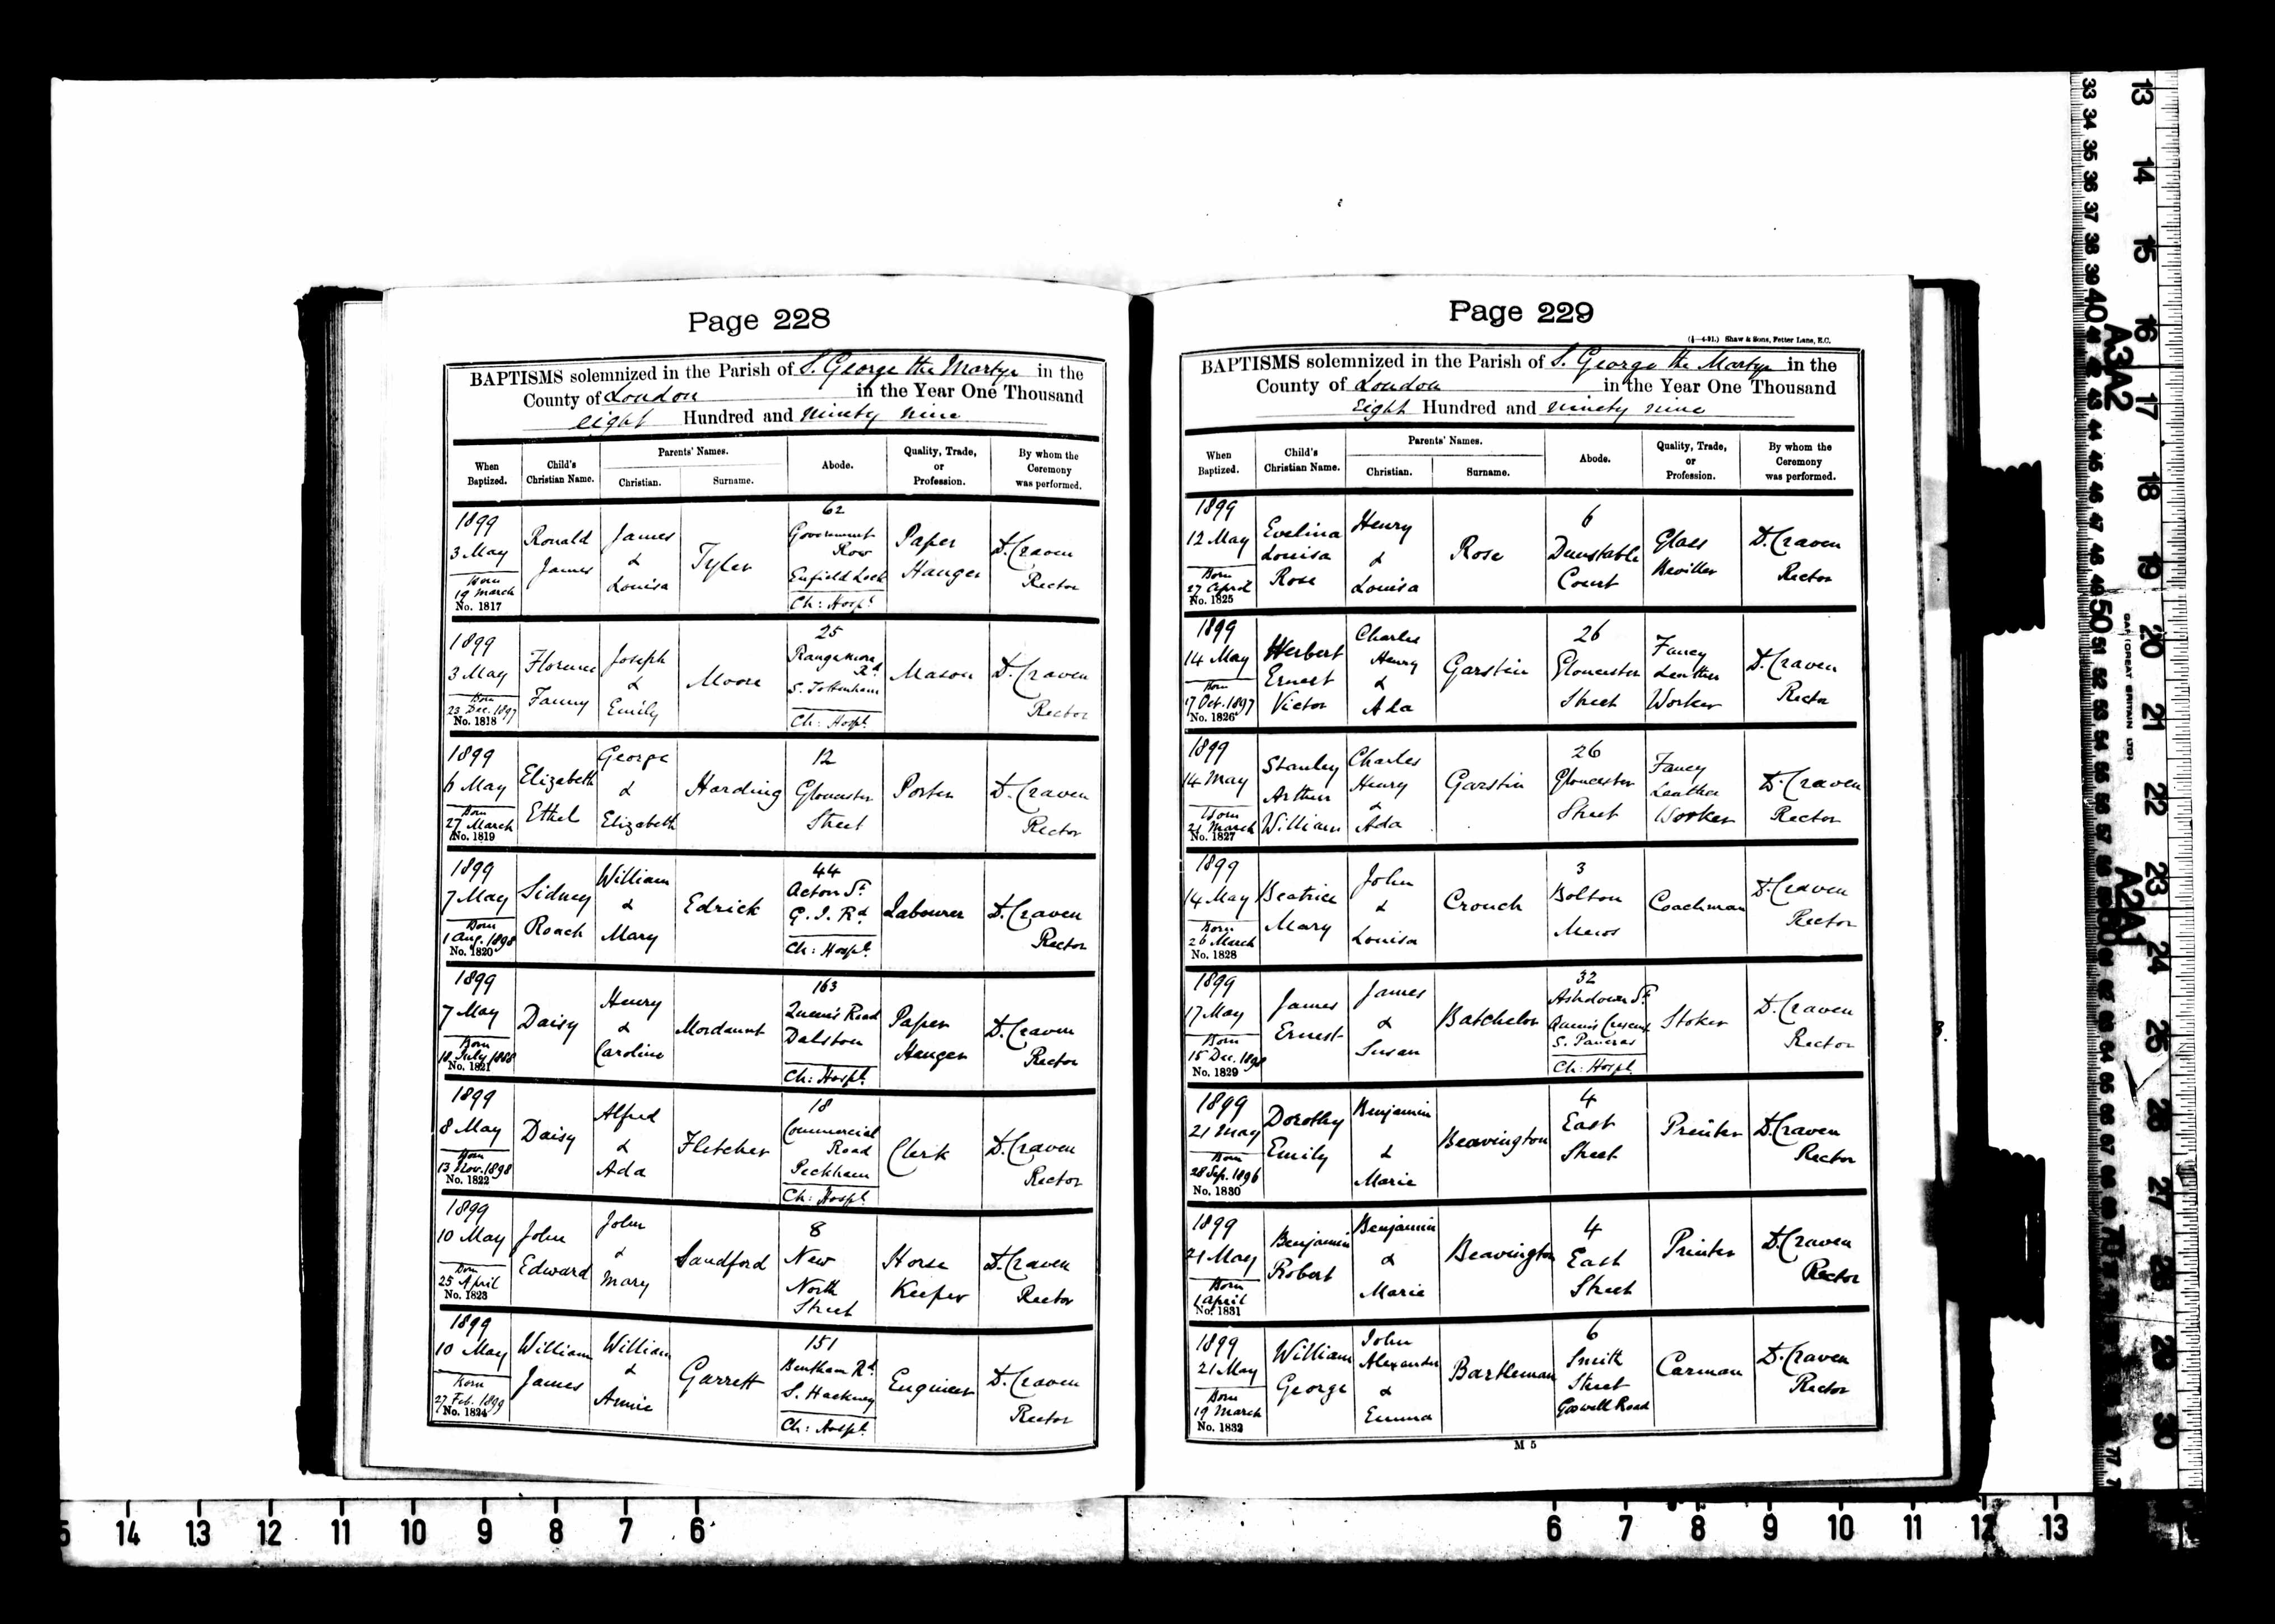 Page 228
BAPTISMS solemnized in the Parish of S. George the Martyr in the
County of London in the Year One Thousand
eight Hundred and ninety nine
When Baptized.
Child's Christian Name.
Parents' Names.
Christian.
Surname.
Abode.
Quality, Trade, or Profession.
By whom the Ceremony was performed.
1899 3 May Born 19 March No. 1817
Ronald James
James & Louisa
Tyler
62 Government Row Enfield Lock Ch: Hospl.
Paper Hanger
D. Craven Rector
1899 3 May Born 23 Dec. 1897 No. 1818
Florence Fanny
Joseph & Emily
Moore
25 Rangemore Rd S. Tottenham Ch: Hospl.
Mason
D. Craven Rector
1899 6 May Born 27 March No. 1819
Elizabeth Ethel
George & Elizabeth
Harding
12 Gloucester Street
Porter
D. Craven Rector
1899 7 May Born 1 Aug. 1898 No. 1820
Sidney Roach
William & Mary
Edrick
44 Acton St G. I. Rd Ch: Hospl.
Labourer
D. Craven Rector
1899 7 May Born 18 July 1888 No. 1821
Daisy
Henry & Caroline
Mordaunt
163 Queen's Road Dalston Ch: Hospl.
Paper Hanger
D. Craven Rector
1899 8 May Born 13 Nov. 1898 No. 1822
Daisy
Alfred & Ada
Fletcher
18 Commercial Road Peckham Ch: Hospl.
Clerk
D. Craven Rector
1899 10 May Born 25 April No. 1823
John Edward
John & Mary
Sandford
8 New North Street
Horse Keeper
D. Craven Rector
1899 10 May Born 27 Feb. 1899 No. 1824
William James
William & Annie
Garrett
151 Bentham Rd. S. Hackney Ch: Hospl.
Engineer
D. Craven Rector
Page 229
(¼—4-91.) Shaw & Sons, Fetter Lane, E.C.
BAPTISMS solemnized in the Parish of S. George the Martyr in the
County of London in the Year One Thousand
Eight Hundred and ninety nine
When Baptized.
Child's Christian Name.
Parents' Names.
Christian.
Surname.
Abode.
Quality, Trade, or Profession.
By whom the Ceremony was performed.
1899 12 May Born 27 April No. 1825
Evelina Louisa Rose
Henry & Louisa
Rose
6 Dunstable Court
Glass Beviller
D. Craven Rector
1899 14 May Born 17 Oct. 1897 No. 1826
Herbert Ernest Victor
Charles Henry & Ada
Garstin
26 Gloucester Street
Fancy Leather Worker
D. Craven Rector
1899 14 May Born 21 March No. 1827
Stanley Arthur William
Charles Henry & Ada
Garstin
26 Gloucester Street
Fancy Leather Worker
D. Craven Rector
1899 14 May Born 26 March No. 1828
Beatrice Mary
John & Louisa
Crouch
3 Bolton Mews
Coachman
D. Craven Rector
1899 17 May Born 15 Dec. 1898 No. 1829
James Ernest
James & Susan
Batchelor
32 Ashdown St. Queen's Crescent S. Pancras Ch: Hospl.
Stoker
D. Craven Rector
1899 21 May Born 28 Sep. 1896 No. 1830
Dorothy Emily
Benjamin & Marie
Beavington
4 East Street
Printer
D. Craven Rector
1899 21 May Born 1 April No. 1831
Benjamin Robert
Benjamin & Marie
Beavington
4 East Street
Printer
D. Craven Rector
1899 21 May Born 19 March No. 1832
William George
John Alexander & Emma
Bartleman
6 Smith Street Goswell Road
Carman
D. Craven Rector
M 5